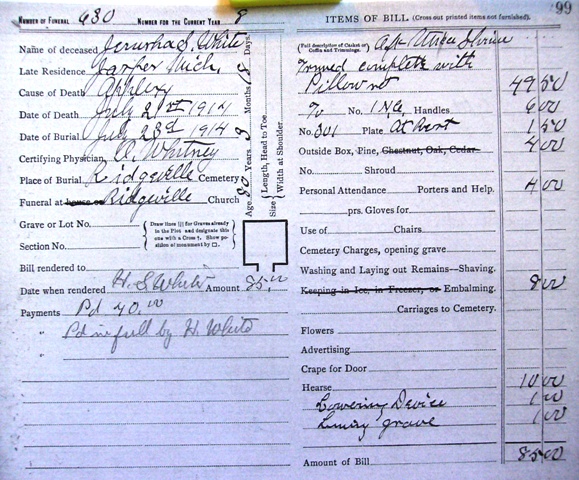 99
NUMBER OF FUNERAL 630 NUMBER FOR THE CURRENT YEAR 9
Name of deceased Jerusha S. White
Late Residence Jasper Mich.
Cause of Death Applexy
Date of Death July 21st 1914
Date of Burial July 23d 1914
Certifying Physician Whitney
Place of Burial Ridgeville Cemetery
Funeral at house or Ridgeville Church
Grave or Lot No.
Section No.
Draw lines (|) for Graves already in the Plot and designate this one with a Cross †. Show position of monument by □.
Age 80 Years 8 Months Days
Size { Length, Head to Toe.
Width at Shoulder
Bill rendered to
Date when rendered H. S. White Amount 85.00
Payments Pd 40.00
" Pd in full by H. White
"
ITEMS OF BILL (Cross out printed items not furnished).
(Full description of Casket or Coffin and Trimmings.)
Trimed complete with
Pillow 49 50
No. Handles 6 00
No. 301 Plate At Rest 1 50
Outside Box, Pine, Chestnut, Oak, Cedar 4 00
No. Shroud
Personal Attendance Porters and Help. 4 00
prs. Gloves for
Use of Chairs
Cemetery Charges, opening grave
Washing and Laying out Remains—Shaving.
Keeping in Ice, in Freezer, or Embalming. 8 00
Carriages to Cemetery.
Flowers
Advertising
Crape for Door
Hearse 10 00
Lowering Device 1 00
Lining grave 1 00
Amount of Bill 85 00